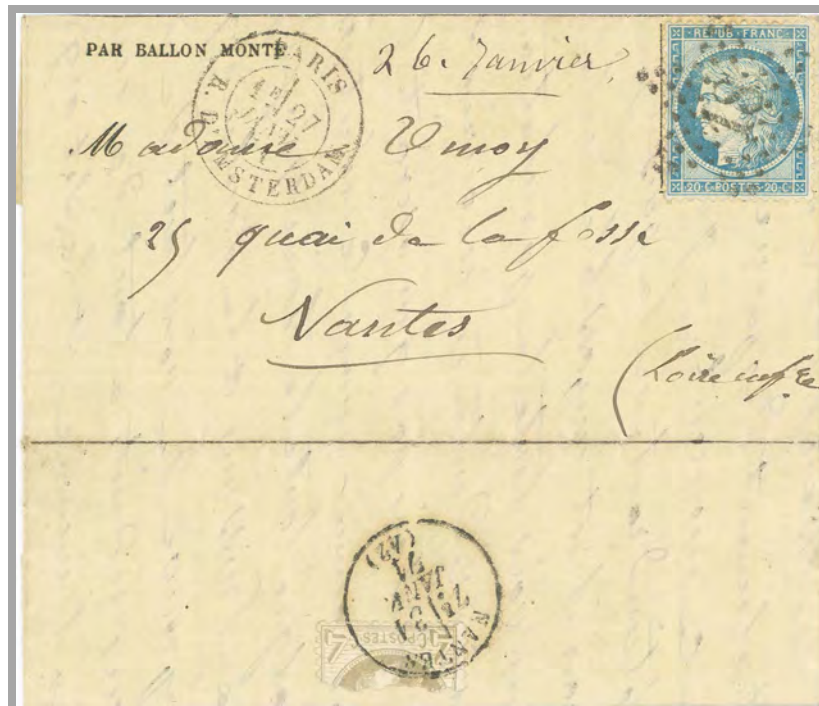 PAR BALLON MONTÉ
26. Janvier
PARIS
1E 27
JANV
71
R. D'AMSTERDAM
REPUB. FRANC.
20 C POSTES 20 C
Madame
25 quai de la fosse
Nantes
(Loire infre
NANTES
JANV.
71
(42)
POSTES